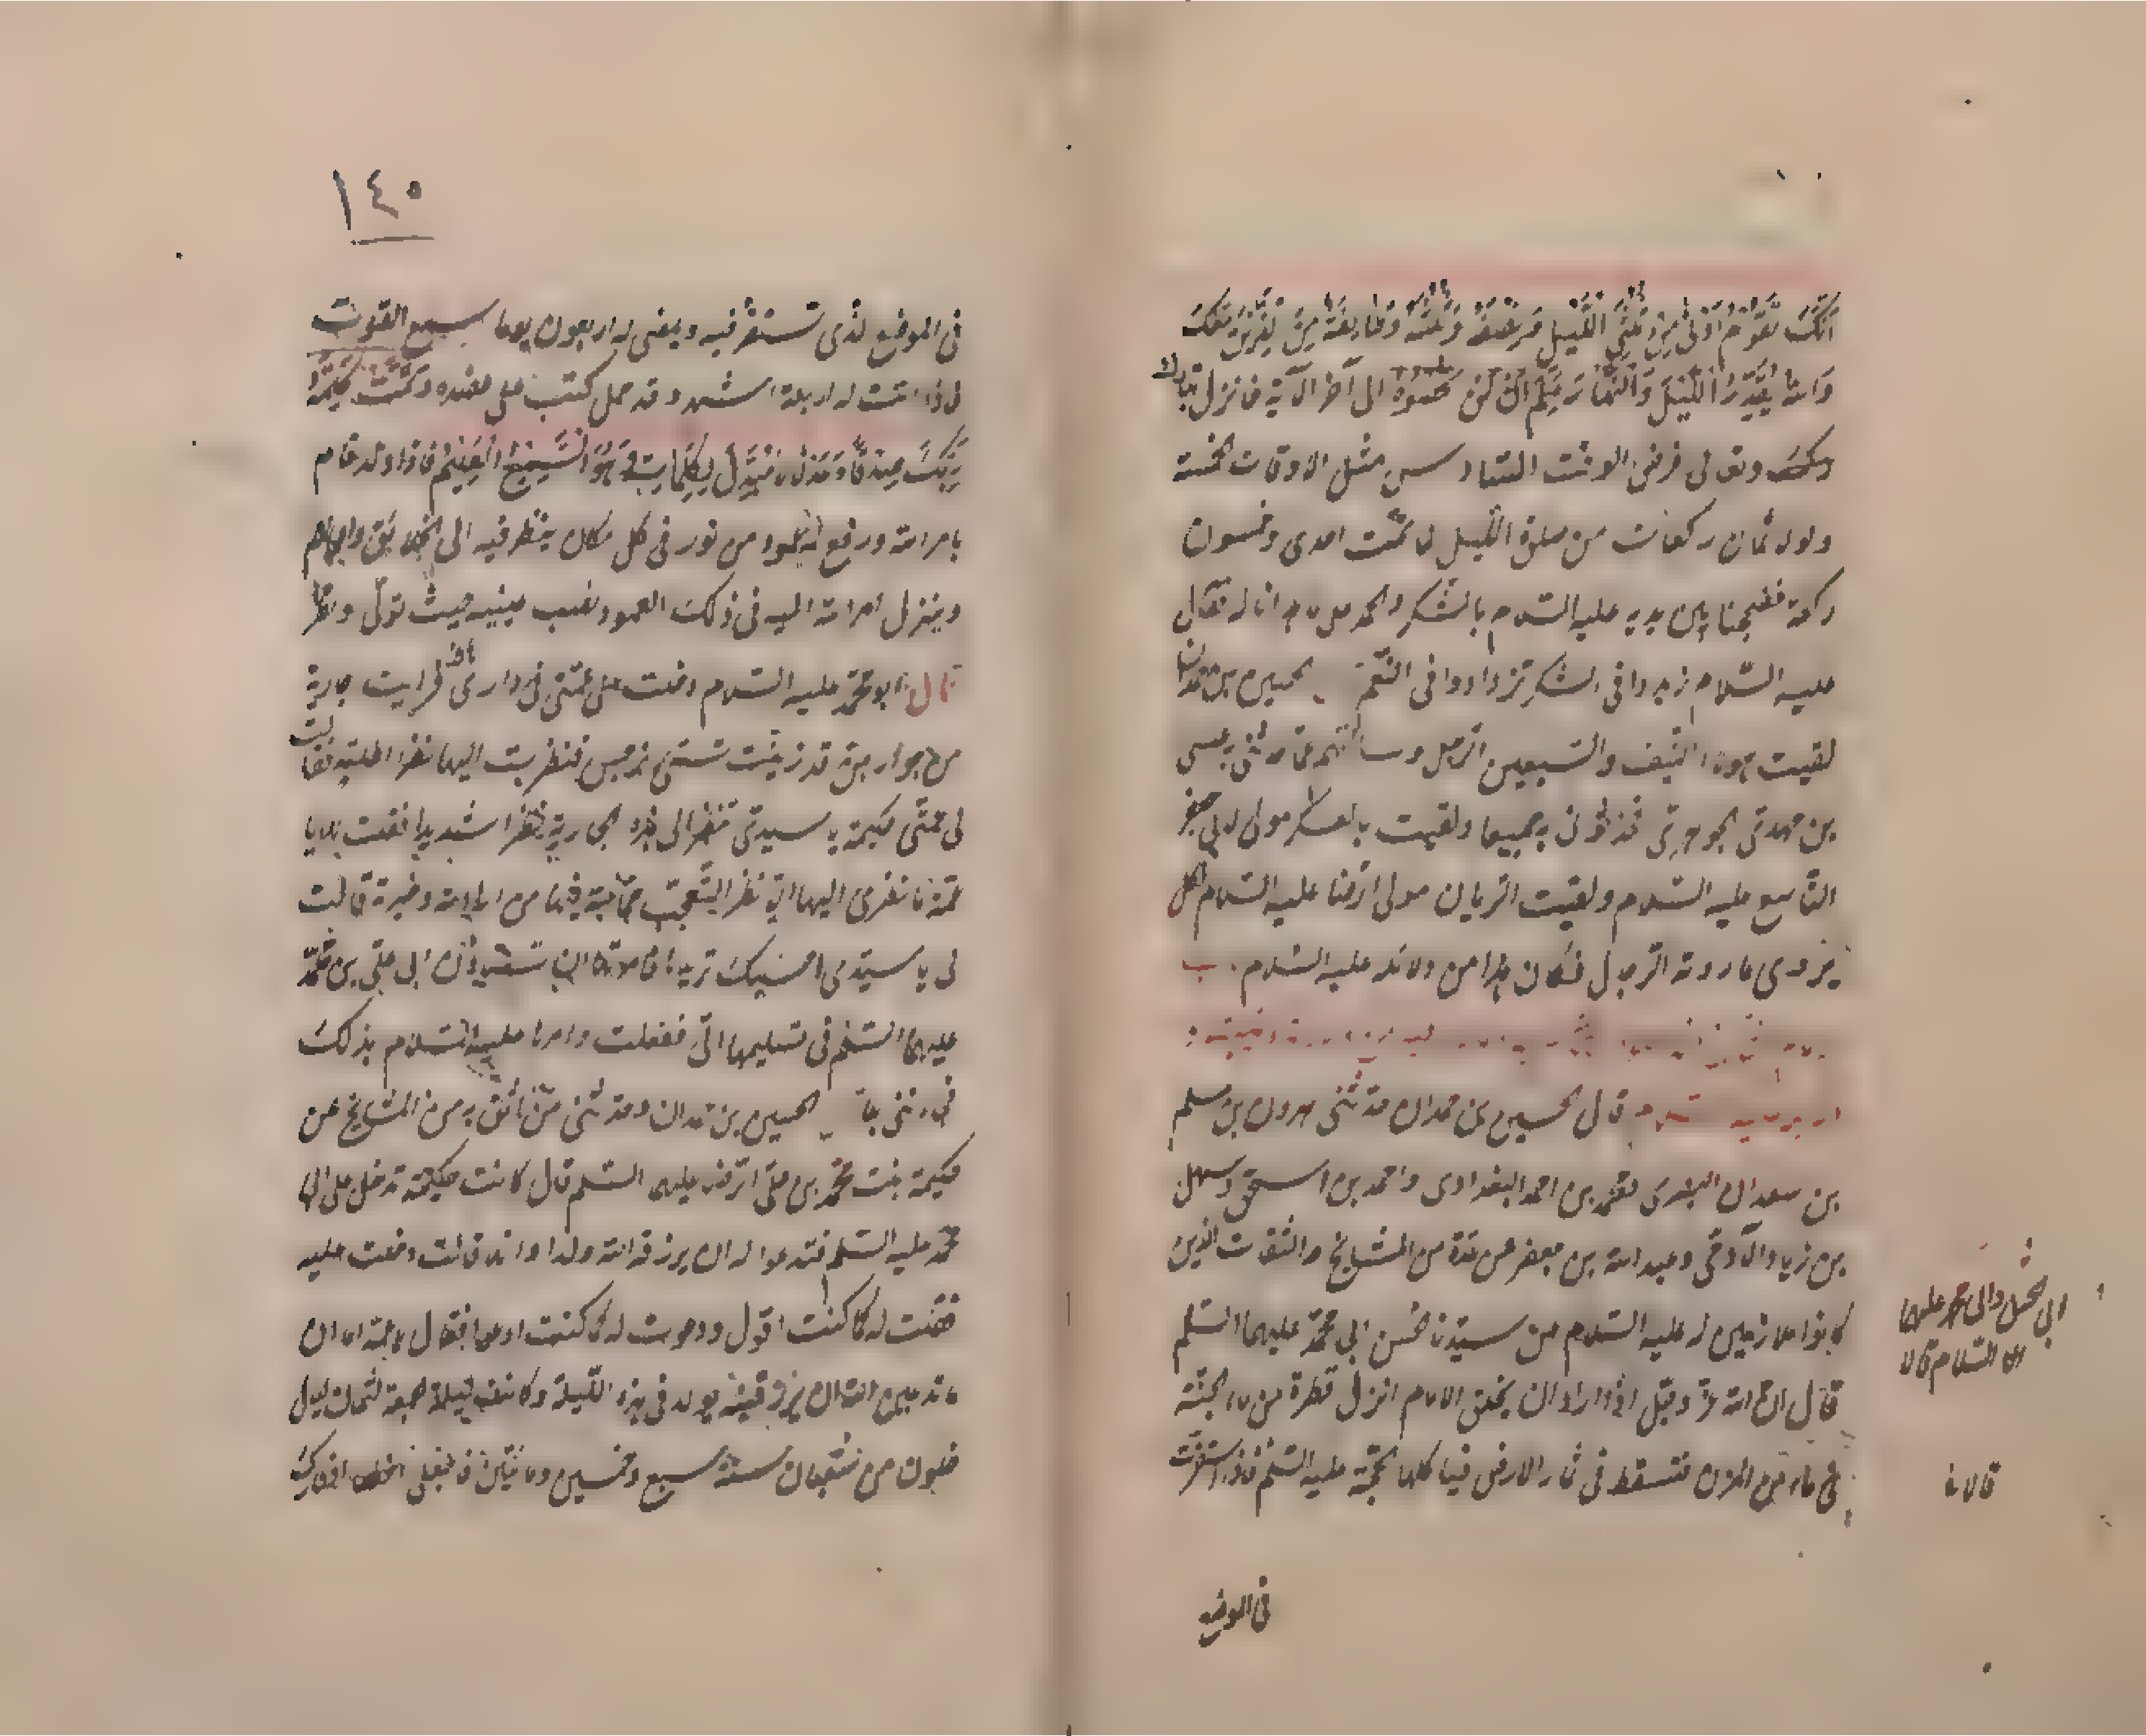 انك تقوم ادنى من ثلثي الليل ونصفه وثلثه وطائفة من الذين معك
والله يقدر الليل والنهار علم ان لن تحصوه الى آخر الآية فانزل تبارك
وتعالى فرض الوقت السادس مثل الاوقات الخمسة
ولولا ثمان ركعات من صلوة الليل لما تمت احدى وخمسون
ركعة فضججنا بين يديه عليه السلام بالشكر والحمد على ما
عليه السلام زيدوا في الشكر تزدادوا في النعم الحسين بن حمدان
لقيت هولاء النيف والسبعين الرجل وسالتهم عما حدثني به عيسى
بن مهدي الجوهري فحدثوني به جميعا ولقيت بالعسكر مولى لابي جعفر
التاسع عليه السلام ولقيت الريان مولى الرضا عليه السلام الكل
يروي ما روته الرجال فكان هذا من دلائله عليه السلام
قال الحسين بن حمدان حدثني هرون بن مسلم
بن سعدان البصري ومحمد بن احمد البغدادي واحمد بن اسحق وسهل
بن زياد الآدمي وعبد الله بن جعفر عن عدة من المشايخ والثقات الذين
كانوا ملازمين له عليه السلام عن سيدنا الحسن ابي محمد عليهما السلم
قال ان الله عز وجل اذا اراد ان يخلق الامام انزل قطرة من ماء الجنة
في ماء من المزن فتسقط في ثمار الارض فياكلها الحجة عليه السلم فاذا استقرت
ابي الحسن وابي محمد عليهما
السلام قالا
قالا
في الموضع
١٤٥
في الموضع الذي تستقر فيه ويمضي له اربعون يوما سمع الصوت
فاذا اتت له اربعة اشهر وقد حمل كتب على عضده وتمت كلمة
ربك صدقا وعدلا لا مبدل لكلماته وهو السميع العليم فاذا ولد قام
بامر الله ورفع له عمود من نور في كل مكان ينظر فيه الى الخلائق واعمالهم
وينزل امر الله اليه في ذلك العمود ونصب عينيه حيث تولى ونظر
قال ابو محمد عليه السلام دخلت على عمتي في داري فرايت جارية
من جواريهن قد زينت تسمى نرجس فنظرت اليها نظرا اطلته فقالت
لي عمتي حكيمة يا سيدي تنظر الى هذه الجارية نظرا شديدا فقلت لها يا
عمة ما نظري اليها الا نظر التعجب مما لله فيها من ارادته وخيرته قالت
لي يا سيدي احسبك تريدها فامرتها ان تستاذن ابي علي بن محمد
عليهما السلم في تسليمها الي ففعلت وامرها عليه السلام بذلك
فجاءتني بها الحسين بن حمدان وحدثني من اثق به من المشايخ عن
حكيمة بنت محمد بن علي الرضا عليهما السلم قال كانت حكيمة تدخل على ابي
محمد عليه السلم فتدعوا له ان يرزقه الله ولدا وانها قالت دخلت عليه
فقلت له كما كنت اقول ودعوت له كما كنت ادعوا فقال يا عمة اما ان
ما تدعين الله ان يرزقنيه يولد في هذه الليلة وكانت ليلة جمعة لثمان ليال
خلون من شعبان سنة سبع وخمسين ومائتين فاجعلي افطارك